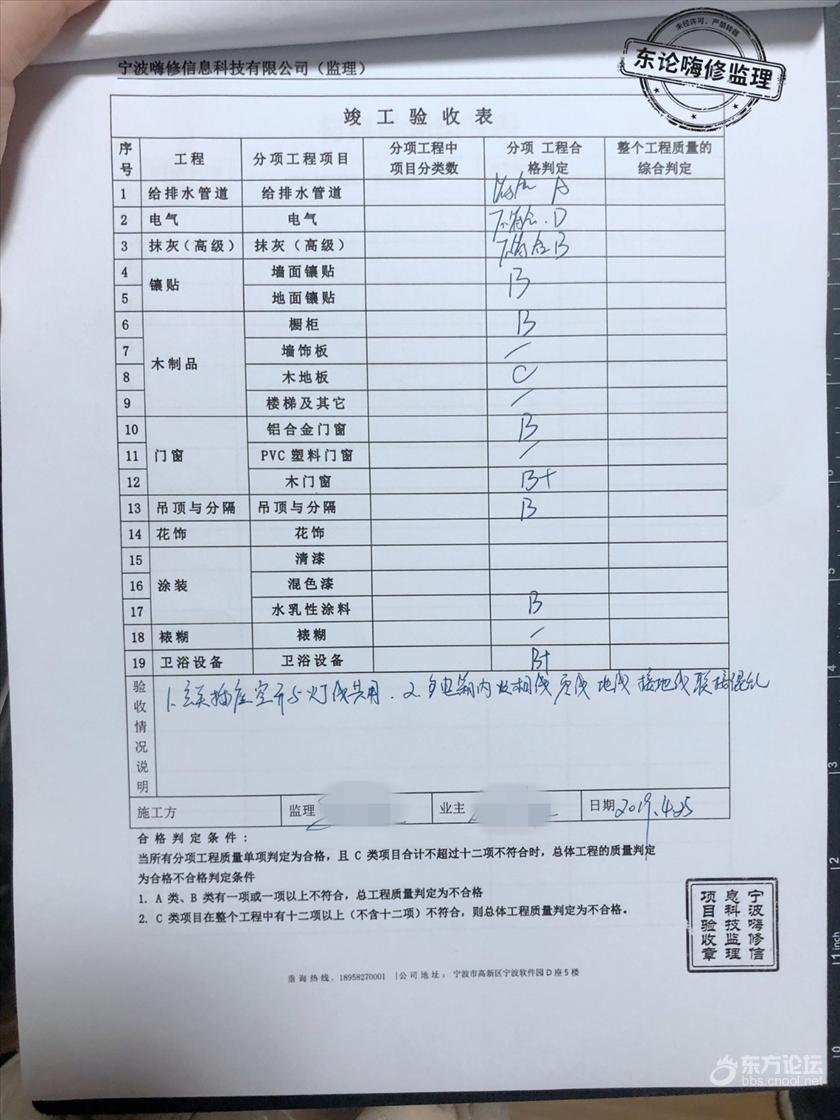 宁波嗨修信息科技有限公司（监理）
未经许可，严禁转载
东论嗨修监理
竣工验收表
序号 工程 分项工程项目 分项工程中项目分类数 分项 工程合格判定 整个工程质量的综合判定
1 给排水管道 给排水管道 A
2 电气 电气 不符合.D
3 抹灰(高级) 抹灰（高级） 不符合 B
4 镶贴 墙面镶贴 B
5 地面镶贴
6 木制品 橱柜 B
7 墙饰板 /
8 木地板 C
9 楼梯及其它 /
10 门窗 铝合金门窗 B
11 PVC塑料门窗 /
12 木门窗 B+
13 吊顶与分隔 吊顶与分隔 B
14 花饰 花饰
15 涂装 清漆
16 混色漆
17 水乳性涂料 B
18 裱糊 裱糊 /
19 卫浴设备 卫浴设备 B+
验收情况说明 1. 插座空开与灯线共用. 2. 电箱内 相线 零线 地线 接地线联接混乱
施工方 监理 业主 日期 2019.4.25
合格判定条件:
当所有分项工程质量单项判定为合格，且 C 类项目合计不超过十二项不符合时，总体工程的质量判定
为合格不合格判定条件
1. A 类、B 类有一项或一项以上不符合，总工程质量判定为不合格
2. C 类项目在整个工程中有十二项以上（不含十二项）不符合，则总体工程质量判定为不合格。
宁波嗨修信息科技监理项目验收章
垂询热线. 18958270001 |公司地址： 宁波市高新区宁波软件园D座5楼
东方论坛
bbs.cnool.net